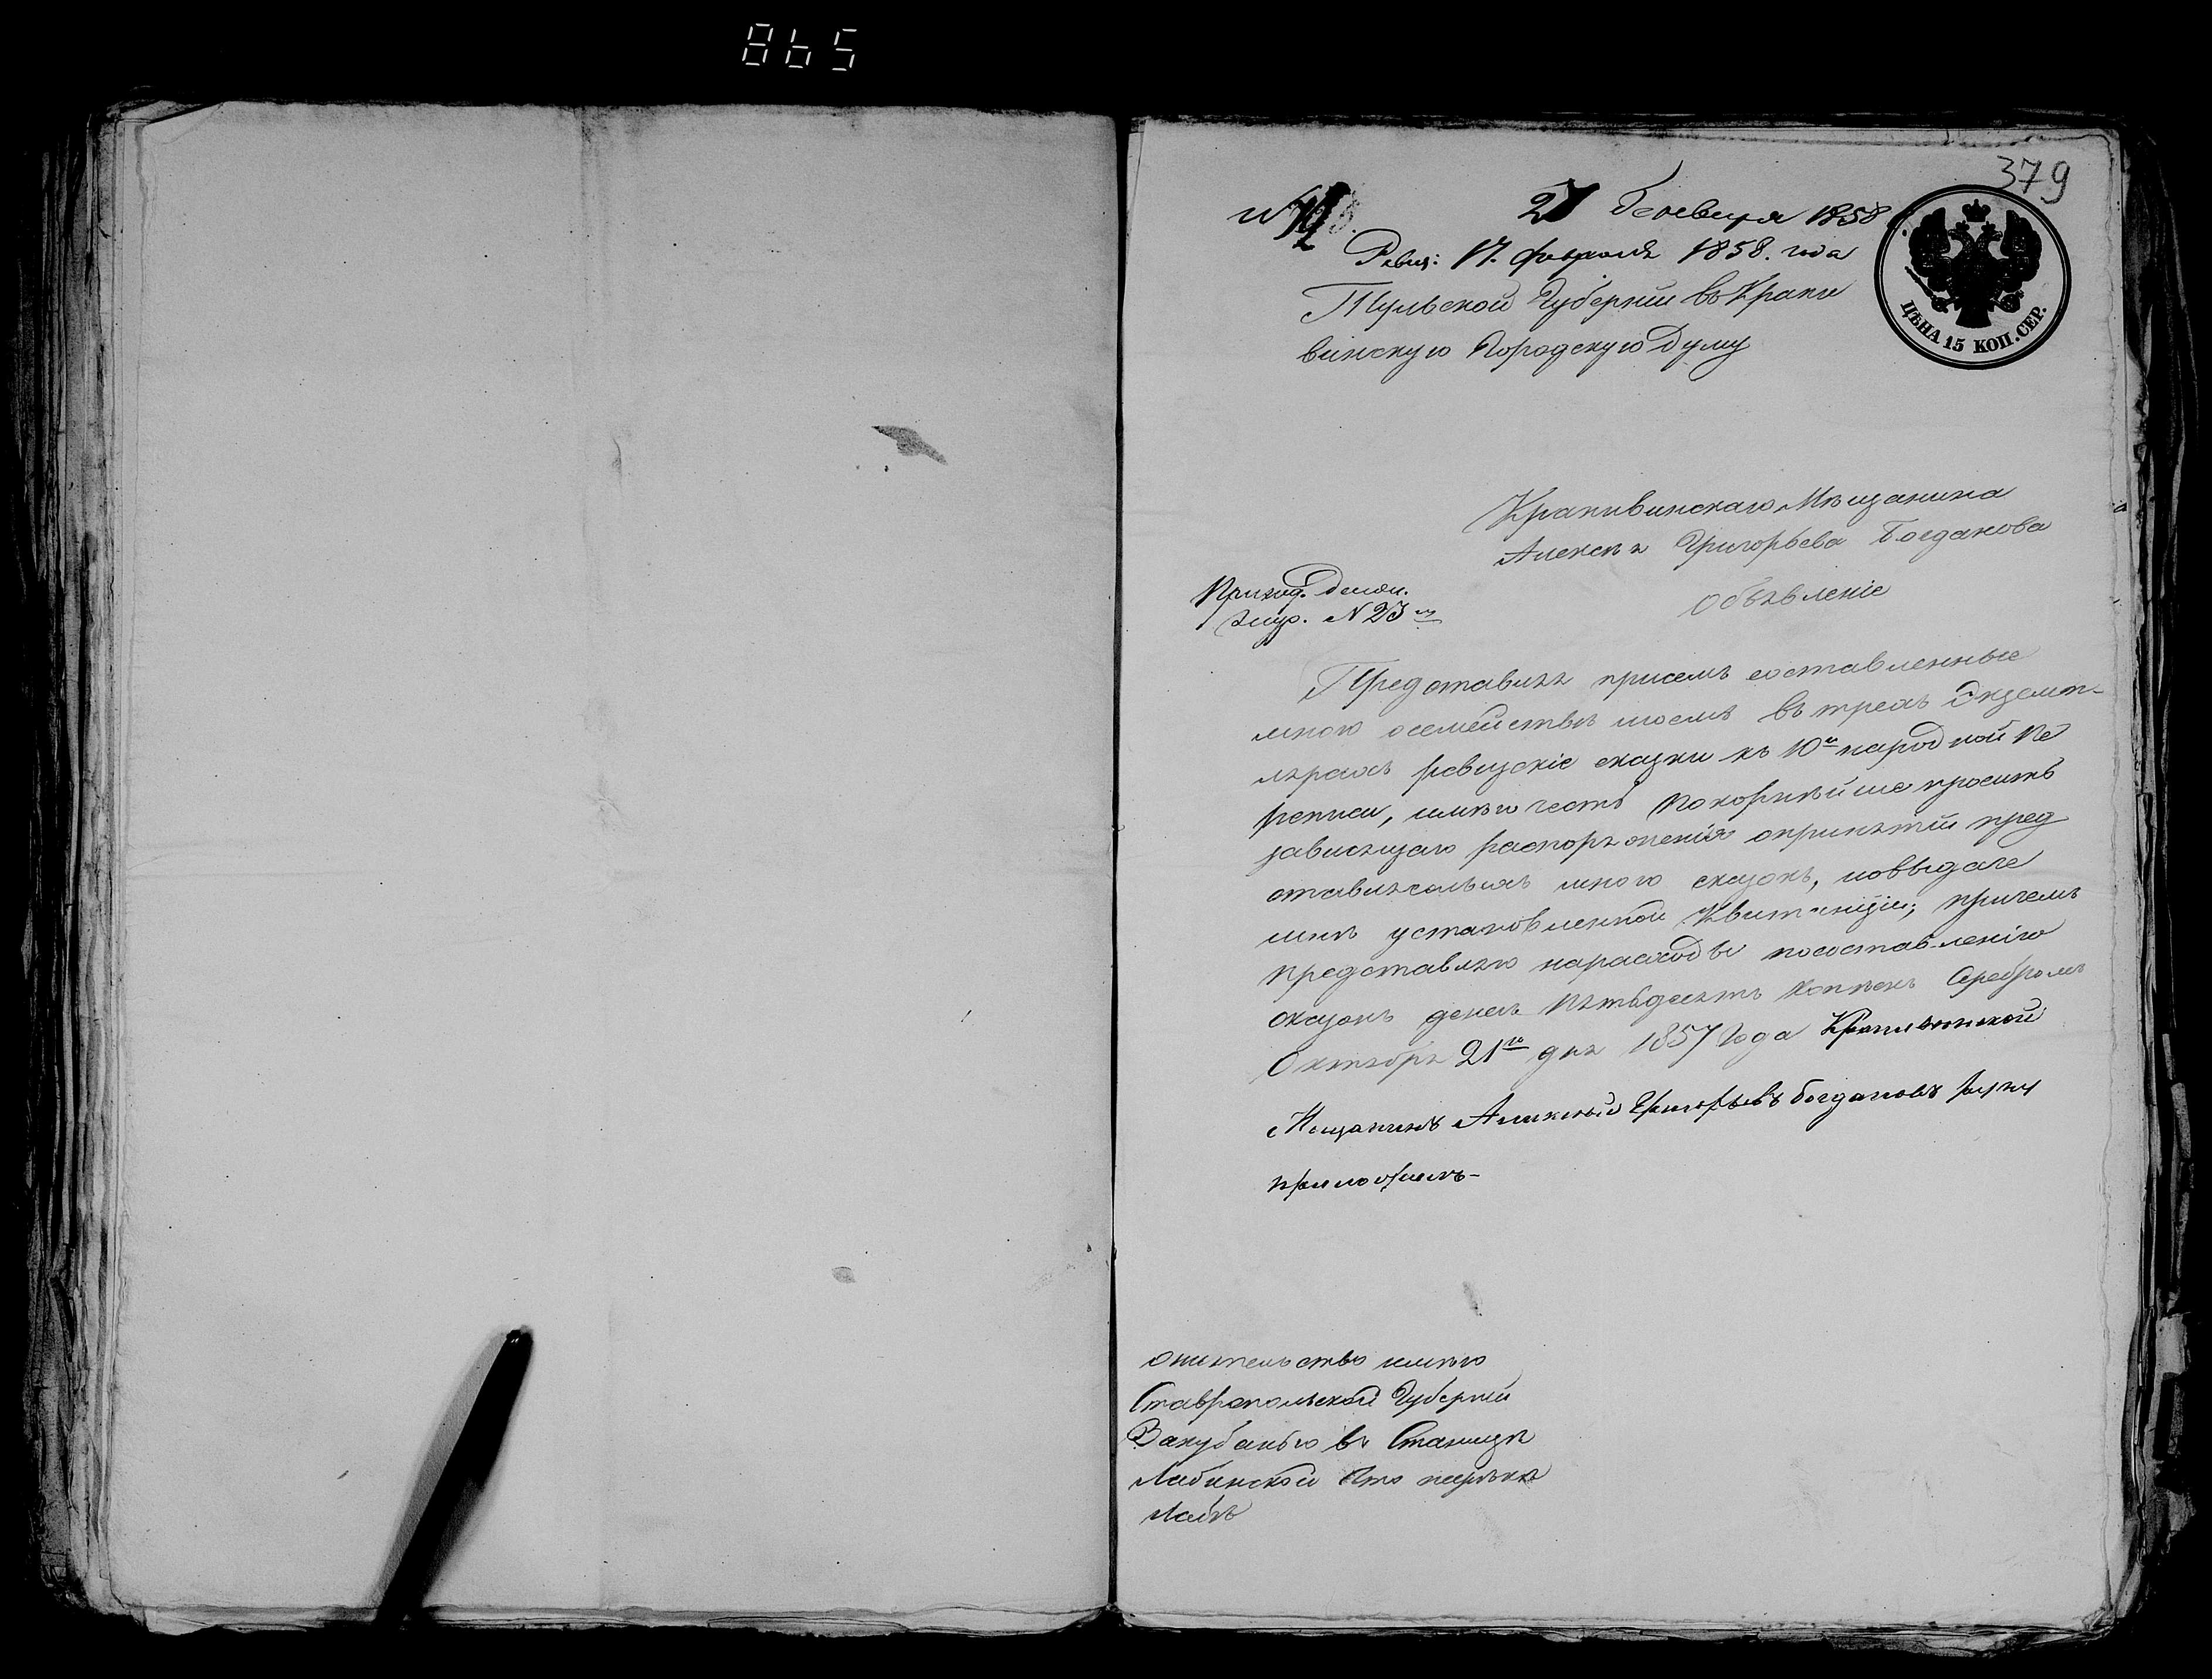 865
379
27 Генваря 1858
Ревиз: 17. февраля 1858. года
Тульской Губернiи въ Крапи
винскую Городскую Думу
ЦѢНА 15 КОП. СЕР.
Крапивинскаго Мѣщанина
Алексѣя Григорьева Богданова
Объявленiе
№ 23
Представляя присемъ составленные
мною осемействѣ моемъ въ трехъ Экземп-
лярахъ ревизскiе сказки къ 10й народной Пе
реписи, имѣю честь Покорнѣйше просить
зависящаго распоряженiя опринятiи пред
ставляемыхъ мною сказокъ, ивыдаче
мнѣ установленной Квитанцiи; причемъ
представляю нарасходы посоставленiю
сказокъ денегъ Пятьдесятъ Копѣекъ Серебромъ
Октября 21го дня 1857 Года Крапивинской
Мещанинъ Алексей Григорьевъ богдановъ руку
приложилъ-
жительство имѣю
Ставропольской Губернiи
Закубанью въ Станицѣ
Лабинской что нарѣкѣ
Лабѣ